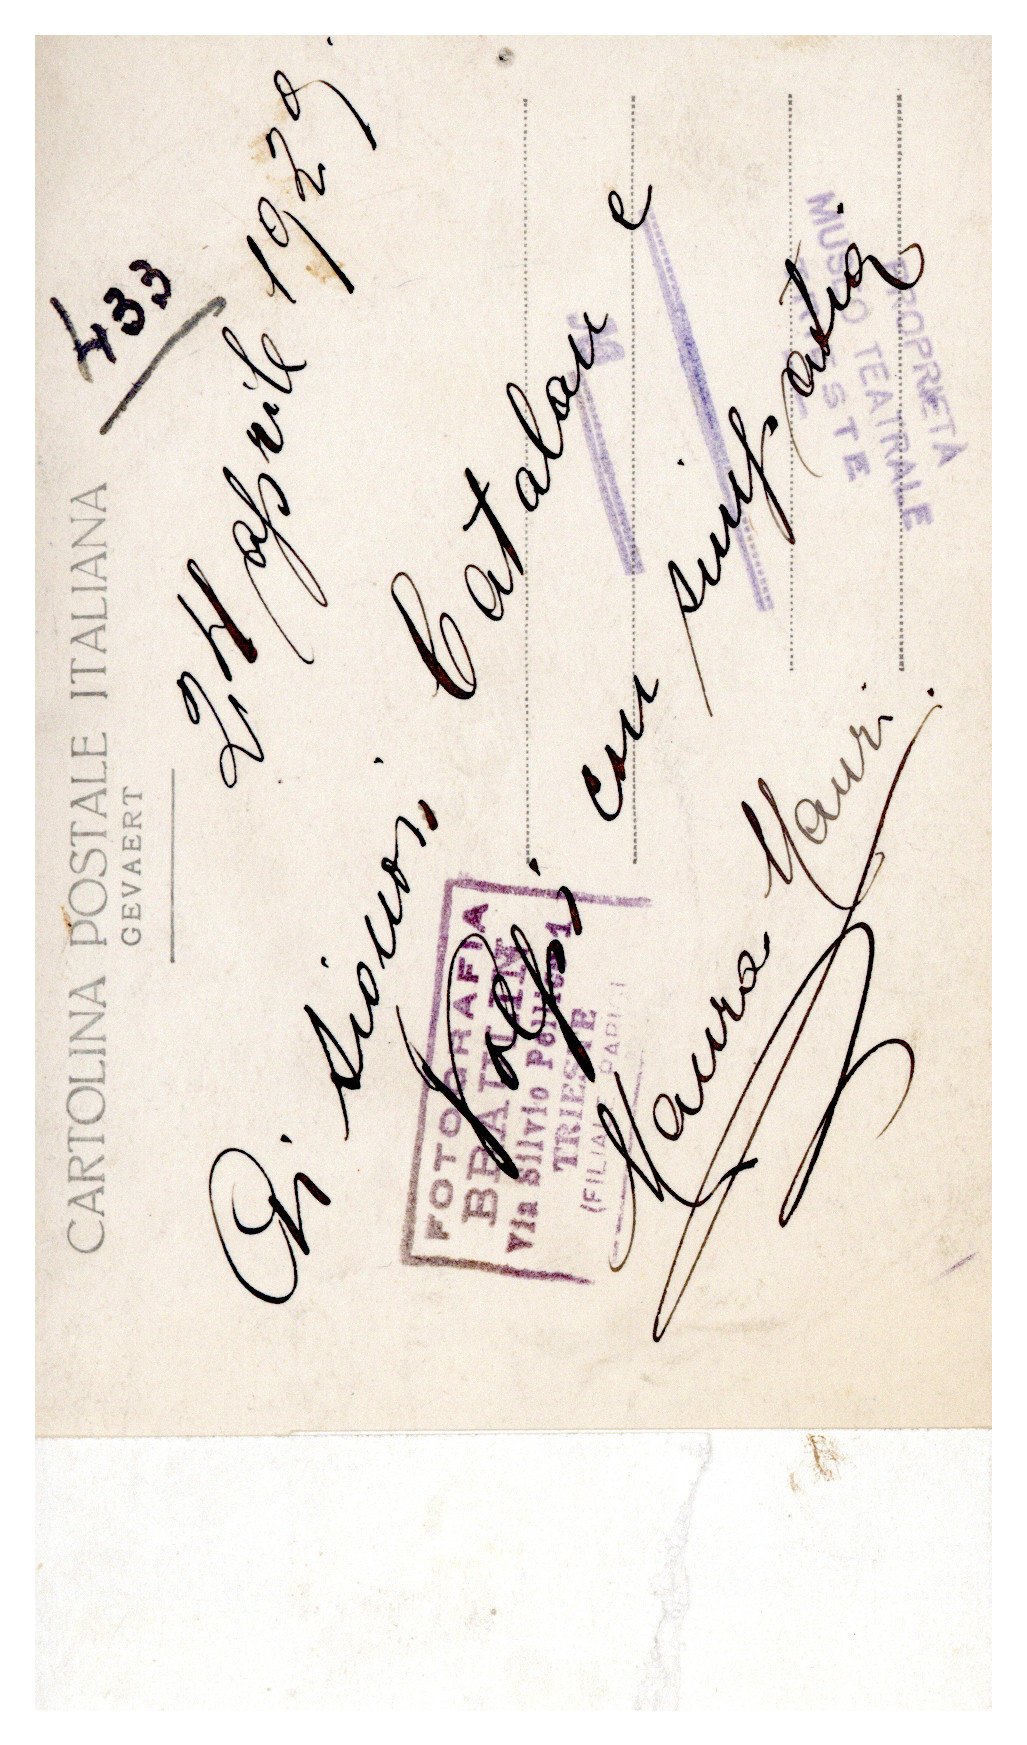 433
CARTOLINA POSTALE ITALIANA
GEVAERT
24 aprile 1929.
Ai signori Catalan e
Volpi con simpatia
Maura Mauri.
FOTOGRAFIA
Via Silvio Pellico 1
TRIESTE
(FILIALE
PROPRIETÀ
MUSEO TEATRALE
TRIESTE